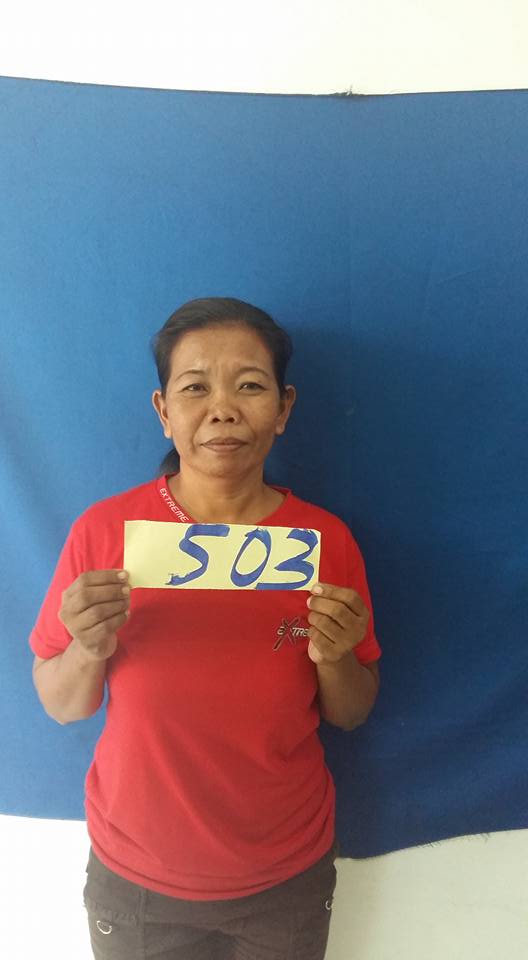 EXTREME
503
EXTRE